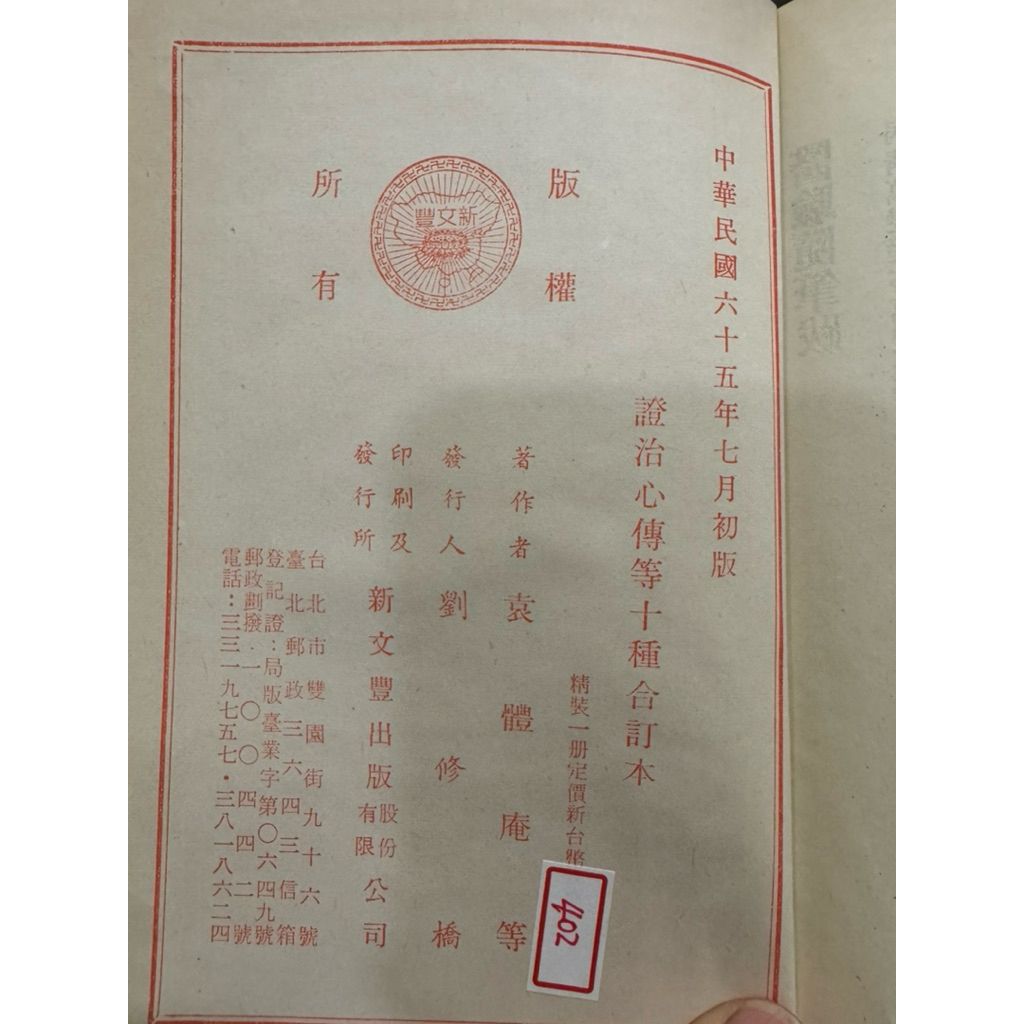 中華民國六十五年七月初版
證治心傳等十種合訂本
精裝一册定價新台幣
402
版權
所有
新文豐
著作者袁體庵等
發行人劉修橋
印刷及
發行所
新文豐出版股份有限公司
台北市雙園街九十六號
臺北郵政三六四三信箱
登記證：局版臺業字第〇六四九號
郵政劃撥·一〇〇四四二號
電話：三三一九七五七·三八一八六二四